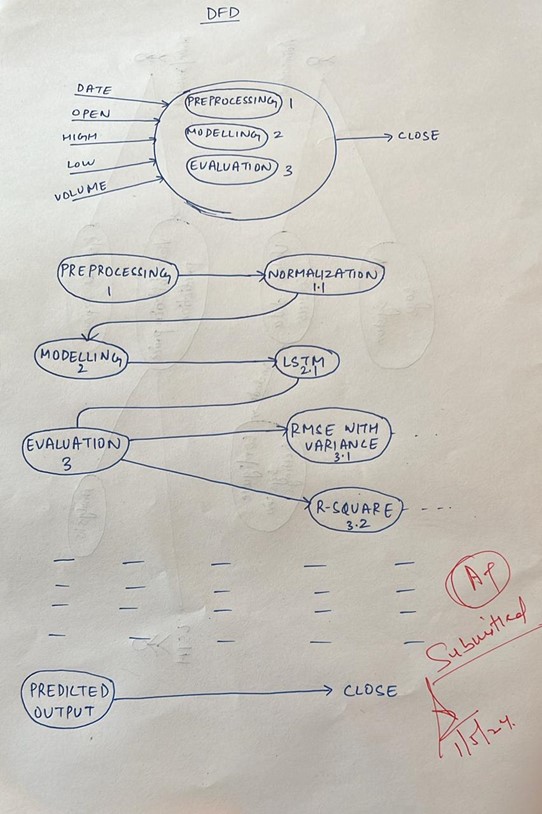 DFD
DATE
OPEN
HIGH
LOW
VOLUME
PREPROCESSING 1
MODELLING 2
EVALUATION 3
CLOSE
PREPROCESSING
1
NORMALIZATION
1.1
MODELLING
2
LSTM
2.1
EVALUATION
3
RMSE WITH
VARIANCE
3.1
R-SQUARE
3.2
Submitted
1/5/24.
PREDICTED
OUTPUT
CLOSE